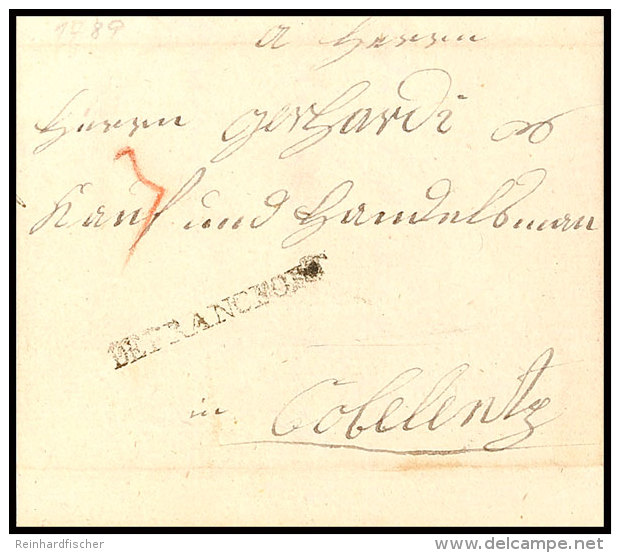 1789
A Herrn
Herrn Gerhardi
Kauf und Handelsman
DE FRANCFORT
in Cobelentz
Reinhardfischer
delcampe.net